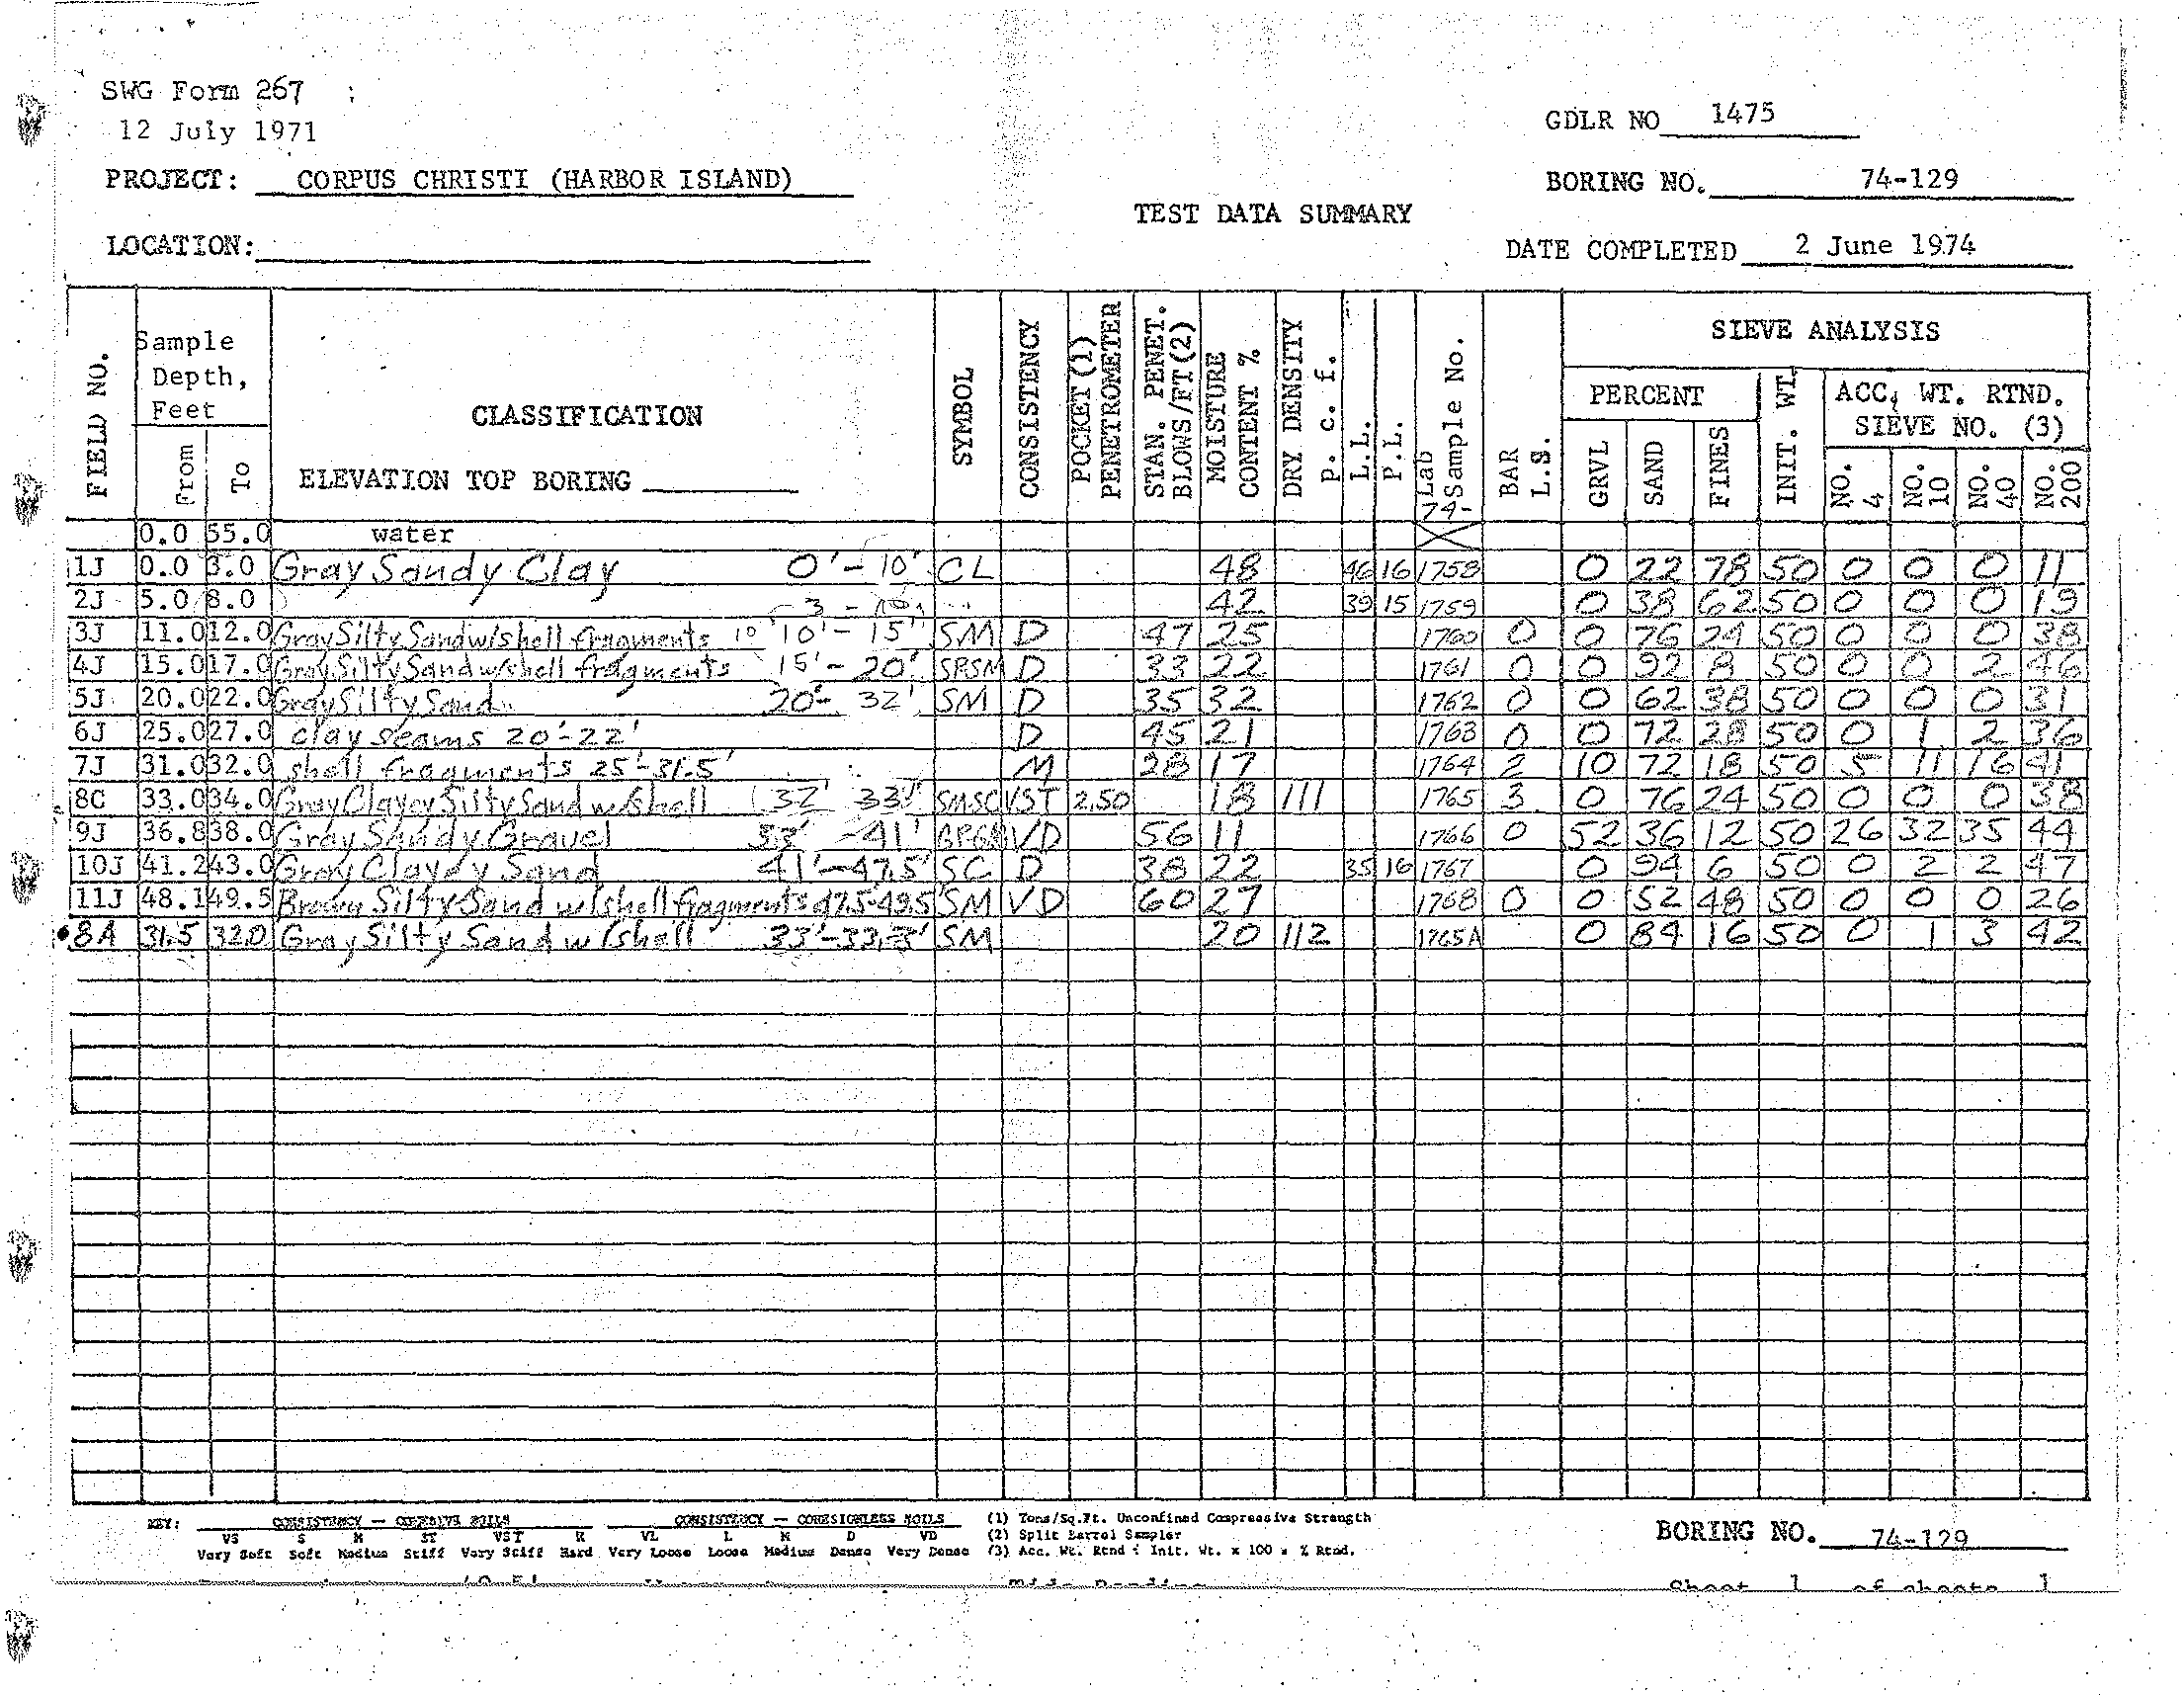 SWG Form 267
12 July 1971
GDLR NO 1475
PROJECT: CORPUS CHRISTI (HARBOR ISLAND)
BORING NO. 74-129
TEST DATA SUMMARY
LOCATION:
DATE COMPLETED 2 June 1974
FIELD NO. Sample Depth, Feet From To CLASSIFICATION ELEVATION TOP BORING SYMBOL CONSISTENCY POCKET (1) PENETROMETER STAN. PENET. BLOWS/FT (2) MOISTURE CONTENT % DRY DENSITY p. c. f. L.L. P.L. Lab Sample No. 74- BAR L.S. SIEVE ANALYSIS PERCENT GRVL SAND FINES INIT. WT. ACC. WT. RTND. SIEVE NO. (3) NO. 4 NO. 10 NO. 40 NO. 200
0.0 55.0 water
1J 0.0 3.0 Gray Sandy Clay 0'-10' CL 48 46 16 1758 0 22 78 50 0 0 0 11
2J 5.0 8.0 42 39 15 1759 0 38 62 50 0 0 0 19
3J 11.0 12.0 Gray Silty Sand w/shell fragments 10'-15' SM D 47 25 1760 0 0 76 24 50 0 0 0 38
4J 15.0 17.0 Gray Silty Sand w/shell fragments 15'-20' SPSM D 33 22 1761 0 0 92 8 50 0 0 2 46
5J 20.0 22.0 Gray Silty Sand 20'-32' SM D 35 32 1762 0 0 62 38 50 0 0 0 31
6J 25.0 27.0 clay seams 20'-22' D 45 21 1763 0 0 72 28 50 0 1 2 36
7J 31.0 32.0 shell fragments 25'-31.5' M 28 17 1764 2 10 72 18 50 5 11 16 41
8C 33.0 34.0 Gray Clayey Silty Sand w/shell 32' 33' SMSC VST 2.50 18 111 1765 3 0 76 24 50 0 0 0 38
9J 36.8 38.0 Gray Sandy Gravel 33'-41' GPGM VD 56 11 1766 0 52 36 12 50 26 32 35 44
10J 41.2 43.0 Gray Clayey Sand 41'-47.5' SC D 38 22 35 16 1767 0 94 6 50 0 2 2 47
11J 48.1 49.5 Brown Silty Sand w/shell fragments 47.5-49.5 SM VD 60 27 1768 0 0 52 48 50 0 0 0 26
8A 31.5 32.0 Gray Silty Sand w/shell 33'-33.3' SM 20 112 1765A 0 84 16 50 0 1 3 42
KEY: CONSISTENCY — COHESIVE SOILS CONSISTENCY — COHESIONLESS SOILS (1) Tons/Sq.Ft. Unconfined Compressive Strength
VS S M ST VST H VL L M D VD (2) Split Barrel Sampler
Very Soft Soft Medium Stiff Very Stiff Hard Very Loose Loose Medium Dense Very Dense (3) Acc. Wt. Rtnd ÷ Init. Wt. x 100 = % Rtnd.
BORING NO. 74-129
Sheet 1 of sheets 1